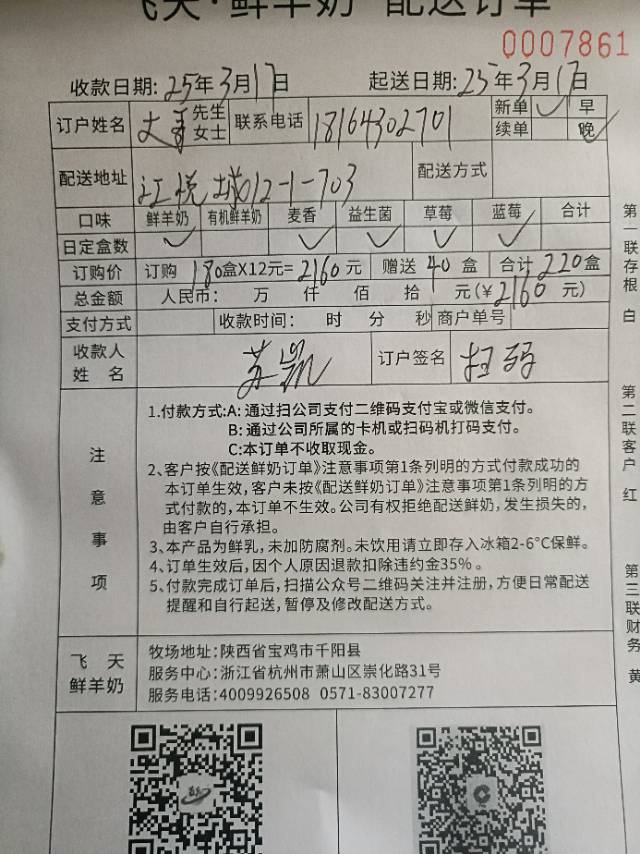 飞天·鲜羊奶 配送订单
0007861
收款日期: 25年3月17日 起送日期: 25年3月17日
订户姓名 大哥 先生 女士 联系电话 18164302701 新单 ✓ 早
续单 晚 ✓
配送地址 江悦城012-1-703 配送方式
口味 鲜羊奶 有机鲜羊奶 麦香 益生菌 草莓 蓝莓 合计
日定盒数 ✓ ✓ ✓ ✓ ✓
订购价 订购 180盒X12元=2160元 赠送 40 盒 合计 220盒
总金额 人民币: 万 仟 佰 拾 元(¥2160 元)
支付方式 收款时间: 时 分 秒 商户单号
收款人 姓名 苏凯 订户签名 扫码
注意事项
1.付款方式:A: 通过扫公司支付二维码支付宝或微信支付。
B: 通过公司所属的卡机或扫码机打码支付。
C:本订单不收取现金。
2、客户按《配送鲜奶订单》注意事项第1条列明的方式付款成功的
本订单生效，客户未按《配送鲜奶订单》注意事项第1条列明的方
式付款的，本订单不生效。公司有权拒绝配送鲜奶，发生损失的，
由客户自行承担。
3、本产品为鲜乳，未加防腐剂。未饮用请立即存入冰箱2-6°C保鲜。
4、订单生效后，因个人原因退款扣除违约金35%。
5、付款完成订单后，扫描公众号二维码关注并注册，方便日常配送
提醒和自行起送，暂停及修改配送方式。
飞天
鲜羊奶
牧场地址:陕西省宝鸡市千阳县
服务中心:浙江省杭州市萧山区崇化路31号
服务电话:4009926508 0571-83007277
第一联存根 白
第二联客户 红
第三联财务 黄